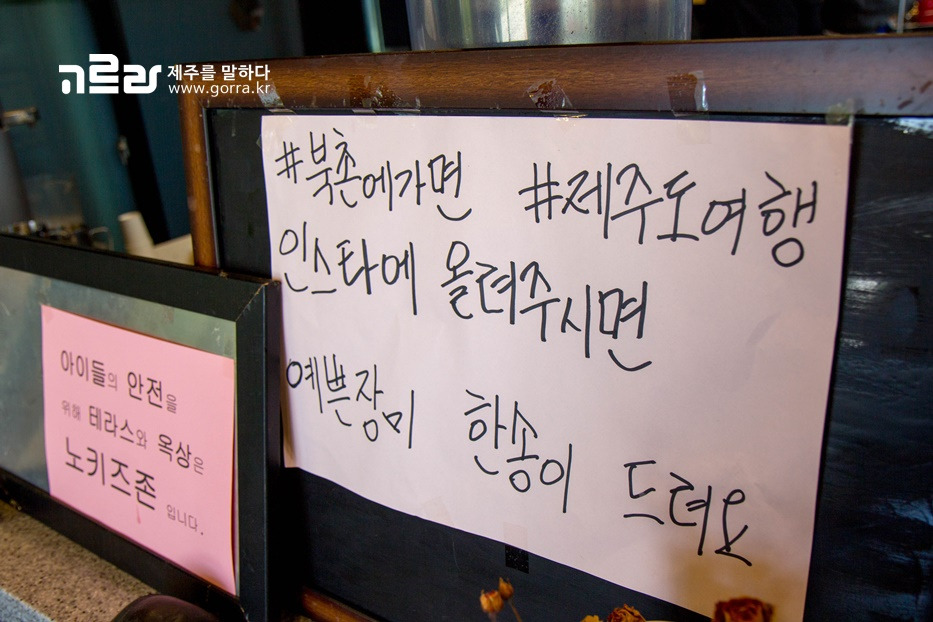 고라 제주를 말하다
www.gorra.kr
#북촌에가면 #제주도여행
인스타에 올려주시면
예쁜장미 한송이 드려요
아이들의 안전을
위해 테라스와 옥상은
노키즈존 입니다.